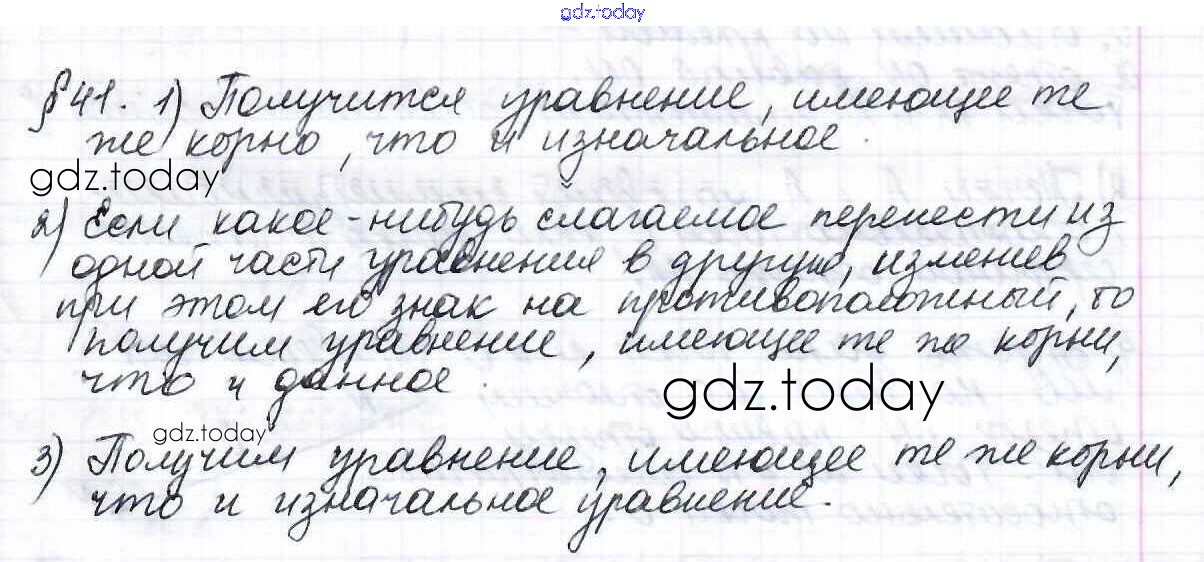 gdz.today
§41. 1) Получится уравнение, имеющее те
же корно, что и изначальное.
gdz.today
2) Если какое-нибудь слагаемое перенести из
одной части уравнения в другую, изменив
при этом его знак на противоположный, то
получим уравнение, имеющее те же корни,
что и данное.
gdz.today
gdz.today
3) Получим уравнение, имеющее те же корни,
что и изначальное уравнение.